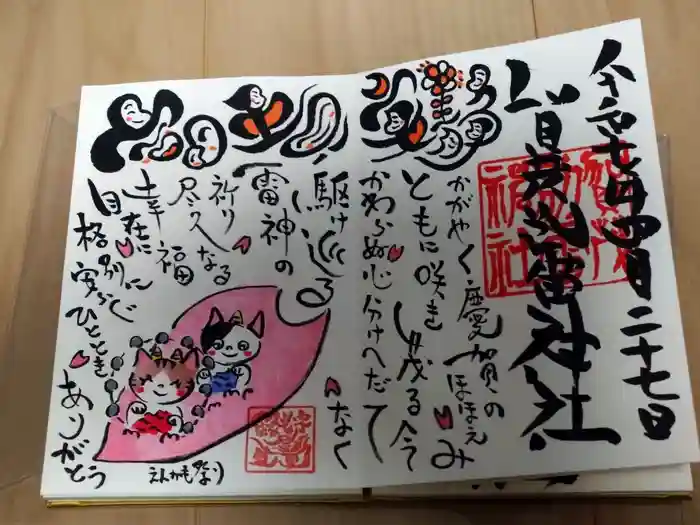 令和七年四月二十七日
賀茂別雷神社
かがやく慶賀のほほえみ
ともに咲き茂る今
かわらぬ心分けへだて
なく
駆け巡る
雷神の
祈り
尽久なる
幸福
自在に
格別に
ひととき
ありがとう
えんがも祭り